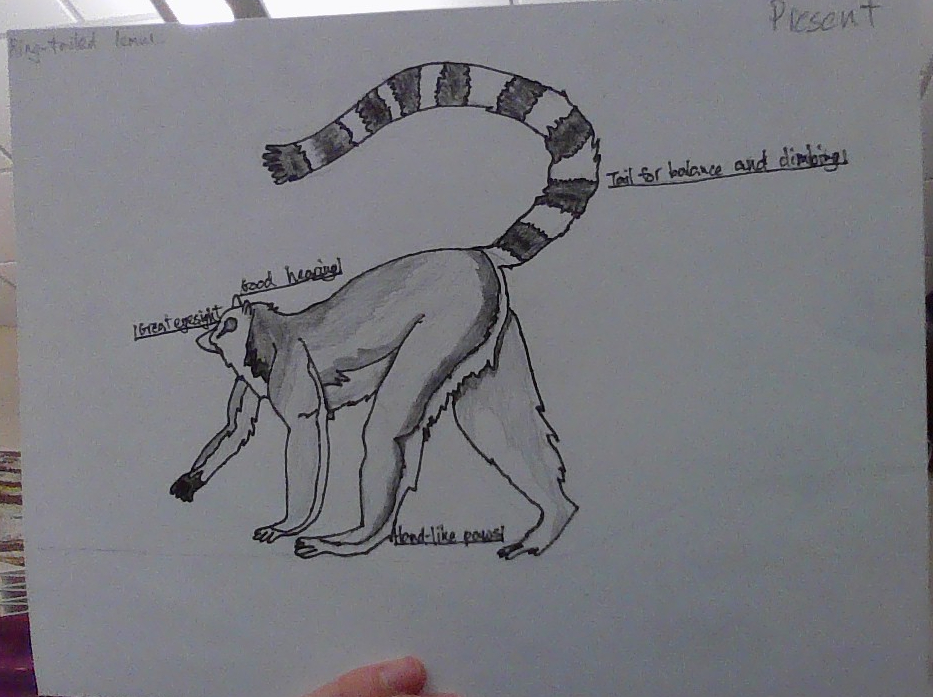 Present
Ring-tailed lemur
Tail for balance and climbing
Good hearing
Great eyesight
Hand-like paws